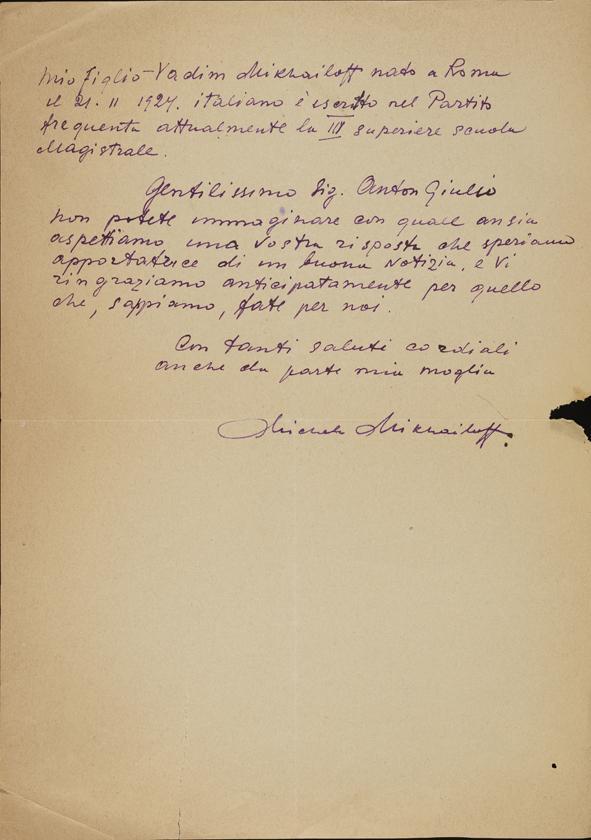 Mio figlio - Vadim Mikhailoff nato a Roma
il 21. II 1924. italiano è iscritto nel Partito
frequenta attualmente la III superiere scuola
Magistrale.
Gentilissimo Sig. Anton Giulio
non potete immaginare con quale ansia
aspettiamo una vostra risposta che speriamo
apportatrice di un buona notizia, e vi
ringraziamo anticipatamente per quello
che, sappiamo, fate per noi.
Con tanti saluti cordiali
anche da parte mia moglia
Michele Mikhailoff.